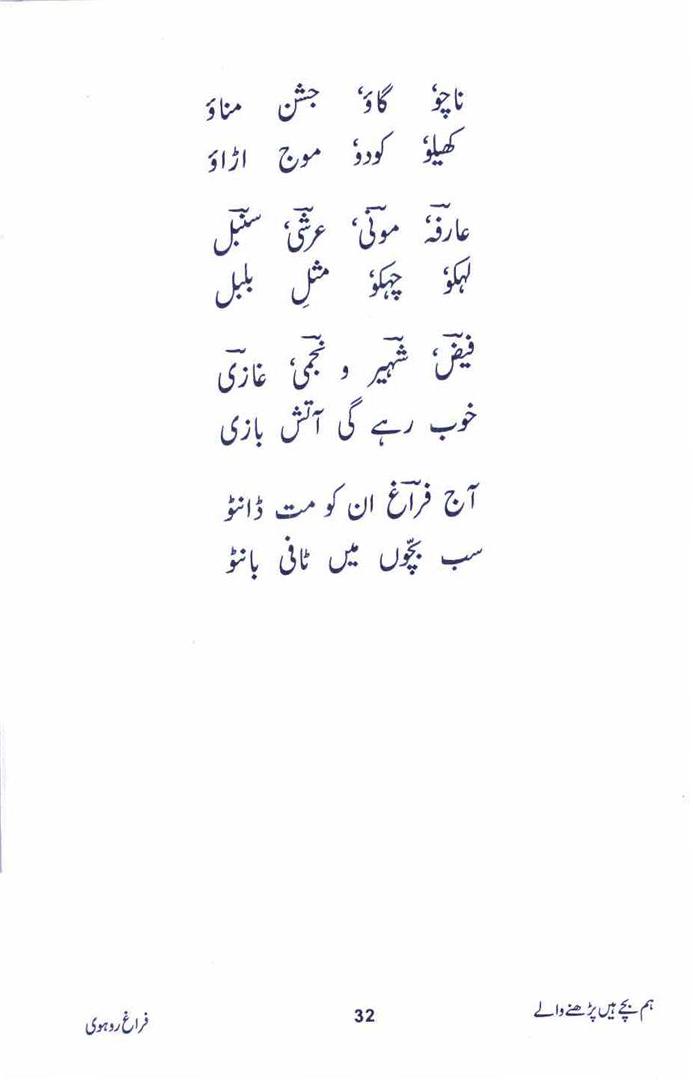 ناچو، گاؤ، جشن مناؤ
کھیلو، کودو، موج اڑاؤ
عارفہؔ، مونیؔ، عرشیؔ، سنبلؔ
لہکو، چہکو، مثلِ بلبل
فیضؔ، شہیرؔ و نجمیؔ، غازیؔ
خوب رہے گی آتش بازی
آج فراغؔ ان کو مت ڈانٹو
سب بچّوں میں ٹافی بانٹو
ہم بچے ہیں پڑھنے والے
32
فراغ روہوی